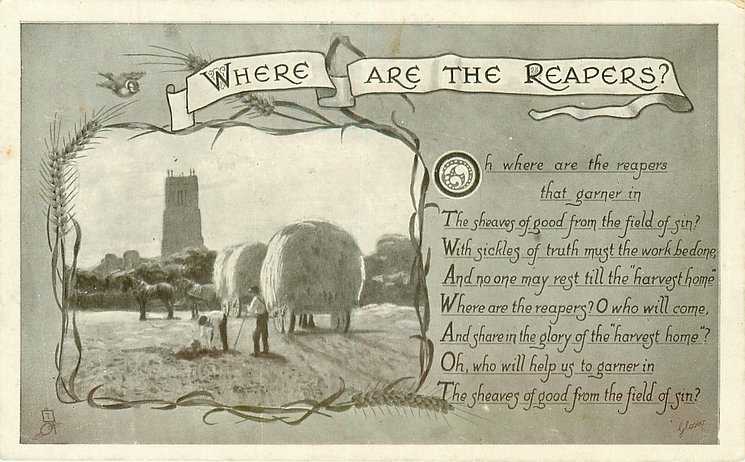 WHERE ARE THE REAPERS?
Oh where are the reapers
that garner in
The sheaves of good from the field of sin?
With sickles of truth must the work be done,
And no one may rest till the "harvest home"
Where are the reapers? O who will come,
And share in the glory of the "harvest home"?
Oh, who will help us to garner in
The sheaves of good from the field of sin?